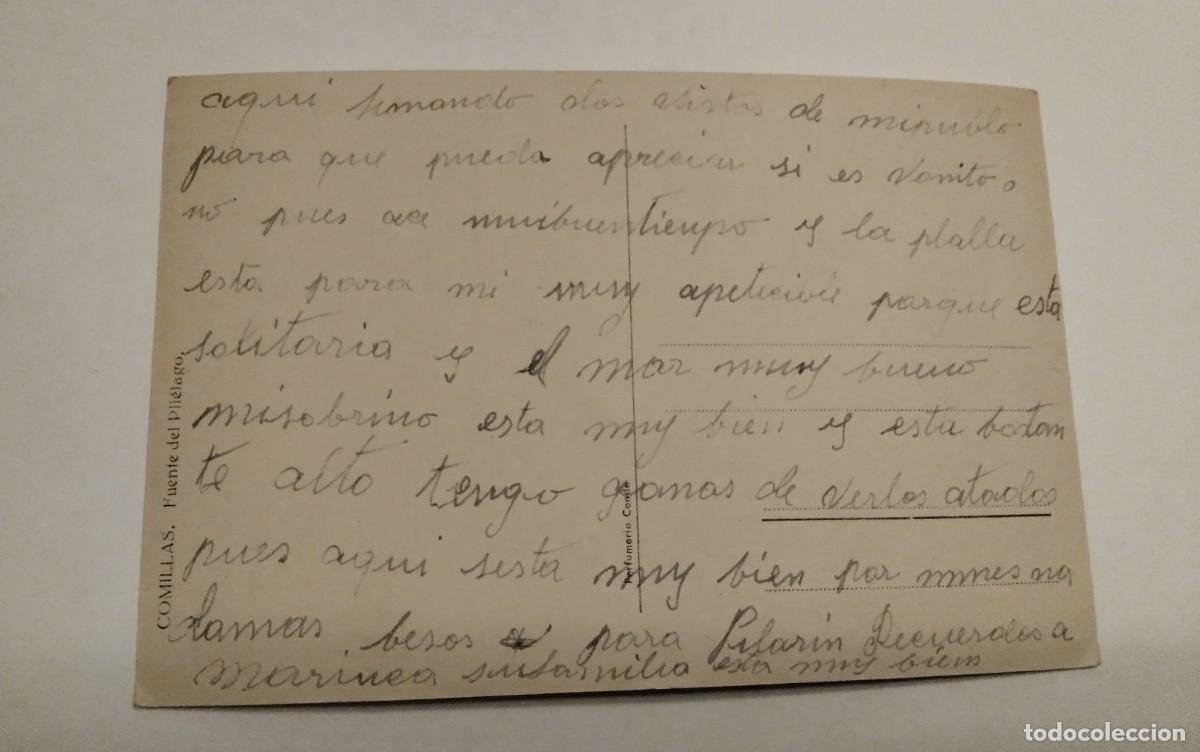 aqui semando dos vistas de mipueblo
para que pueda apreciar si es vonito o
no pues ace muibuentiempo y la plalla
esta para mi muy apeticible parque esta
solitaria y el mar muy bueno
misobrino esta muy bien y esta bastan
te alto tengo ganas de verlos atodos
pues aqui sesta muy bien por
damas besos para Pilarin Recuerdos a
sufamilia esta muy bien
COMILLAS. Fuente del Piélago.
Perfumería Conde
todocoleccion